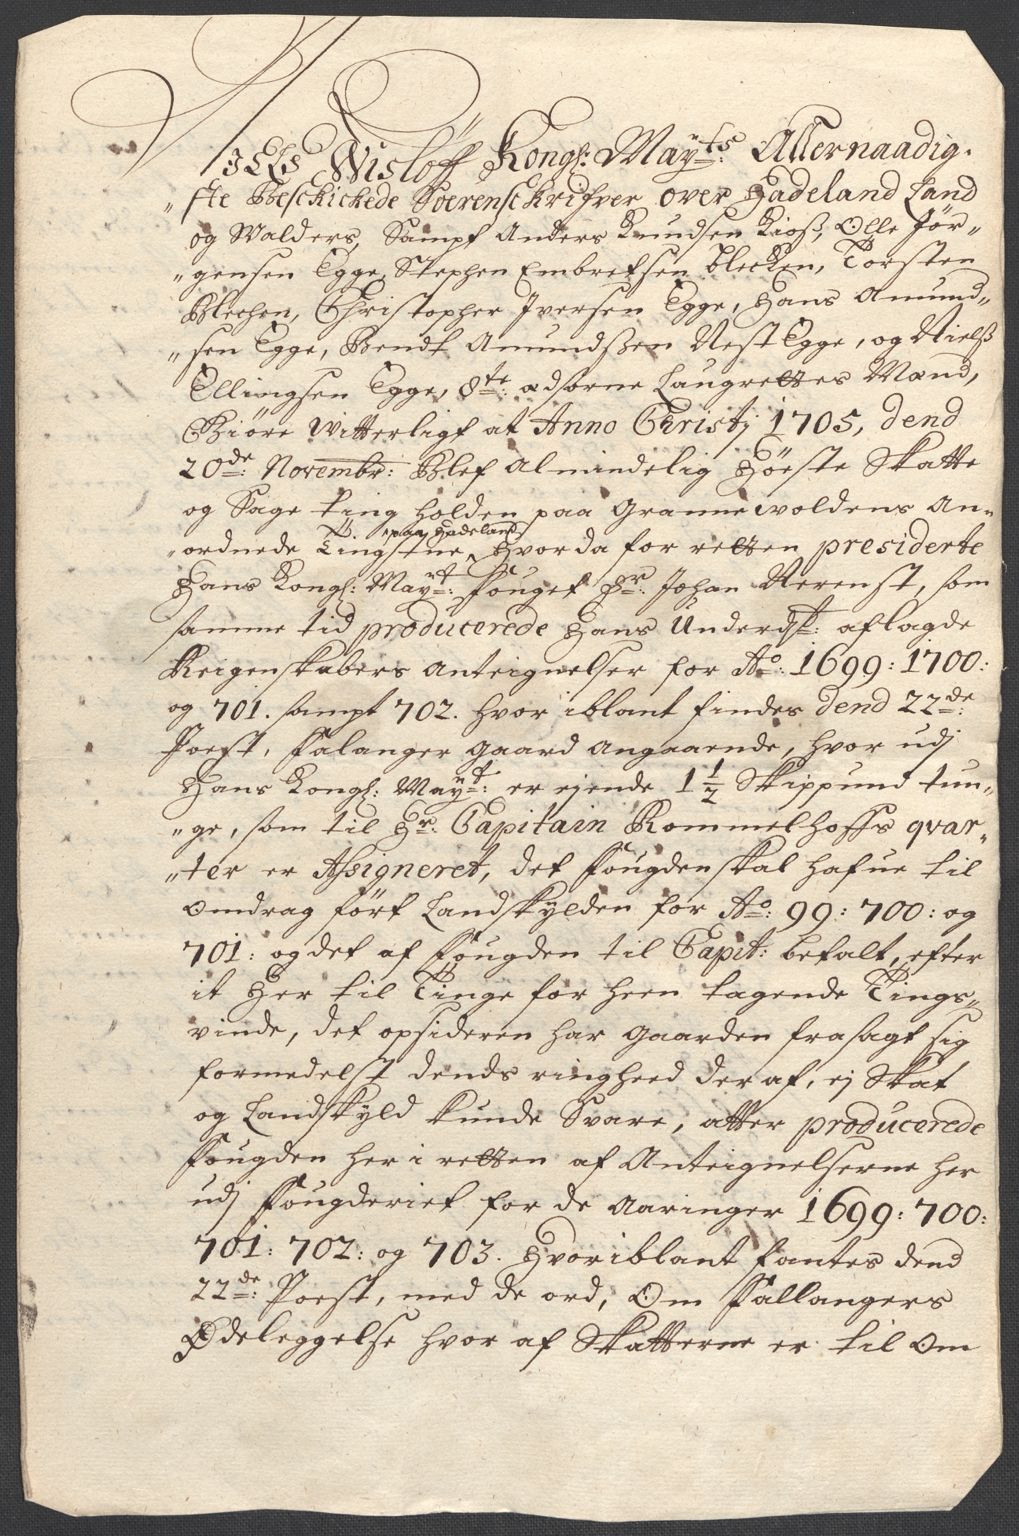 Nels Wisløff Kongl: May^ts: Allernaadig-
"ste Beschickede Soerenschrifver over Hadeland Land
og Walders, Sampt Anders Knudsen Kioß, Olle Jör-
"gensen Egge, Stephen Embretsen blecken, Torsten
Blechen, Christopher Iversen Egge, Hans Amund-
"sen Egge, Bendt Amundßen Nest Egge, og Nielß
Ellingsen Egge, 8^te: edsorne Laugrettes Mænd,
Giöre Witterligt at Anno Christj 1705, dend
20^de: Novembr: Blef Almindelig Höeste Skatte
og Sage ting holden paa Grannewoldens An-
"ordnede Tingstue paa Hadeland, Hvor da for retten presiderte
Hans Kongl: May^tt: Fouget Hr. Johan Nerenst, som
samme tid producerede Hans Underd^st: aflagde
Reigenskabers Anteignelser for A^o: 1699: 1700:
og 701. sampt 702. hvor iblant findes dend 22^de:
Poest, Falanger gaard angaaende, hvor udj
Hans Kongl: May^tt: er ejende 1 1/2 Skippund tun-
"ge, som til Hr. Capitain Rommelhoffs qvar-
"ter er Assigneret, det Fougden skal hafue til
omdrag fört Landskylden for A^o: 99: 700: og
701: og det af Fougden til Capit: betalt, efter
it Her til Tinge for heen tagende Tings-
vinde, det opsideren har gaarden frasagt sig
formedelst dends ringheed der af, ej Skat
og Landskyld kunde Svare, atter producerede
Fougden her i retten af Anteignelserne her
udj Fougderiet for de Aaringer 1699: 700:
701: 702: og 703. Hvor iblant fantes dend
22^de: Poest, med de ord, Om Fallangers
Ödeleggelse hvor af Skatterne er til Om